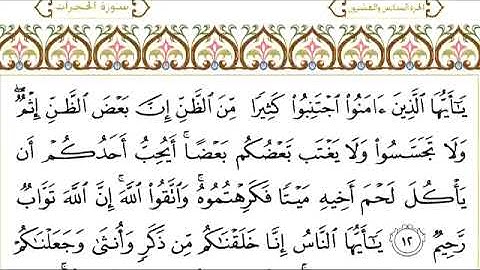 سورة الحجرات
الجزء السادس والعشرون
يَـٰٓأَيُّهَا ٱلَّذِينَ ءَامَنُوا۟ ٱجْتَنِبُوا۟ كَثِيرًا مِّنَ ٱلظَّنِّ إِنَّ بَعْضَ ٱلظَّنِّ إِثْمٌ ۖ
وَلَا تَجَسَّسُوا۟ وَلَا يَغْتَب بَّعْضُكُم بَعْضًا ۚ أَيُحِبُّ أَحَدُكُمْ أَن
يَأْكُلَ لَحْمَ أَخِيهِ مَيْتًا فَكَرِهْتُمُوهُ ۚ وَٱتَّقُوا۟ ٱللَّهَ ۚ إِنَّ ٱللَّهَ تَوَّابٌ
رَّحِيمٌ ١٢ يَـٰٓأَيُّهَا ٱلنَّاسُ إِنَّا خَلَقْنَـٰكُم مِّن ذَكَرٍ وَأُنثَىٰ وَجَعَلْنَـٰكُمْ